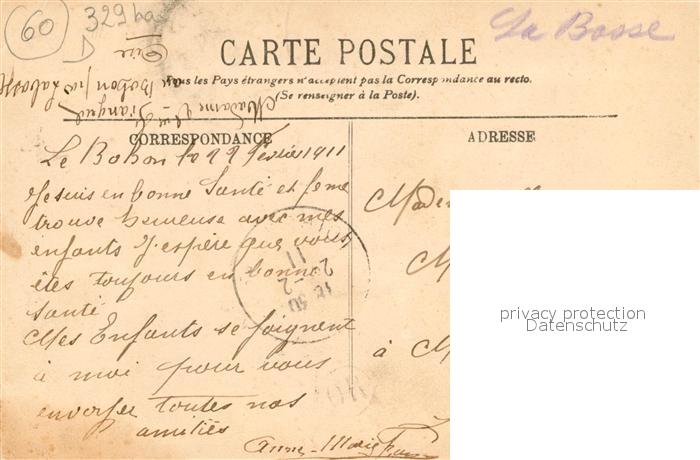 60
329 ba
La Basse
CARTE POSTALE
Tous les Pays étrangers n'acceptent pas la Correspondance au recto.
(Se renseigner à la Poste).
Madame
CORRESPONDANCE
ADRESSE
Le Bohon le 22 Février 1911
Je suis en bonne Santé et je me
trouve heureuse avec mes
enfants J'espère que vous
êtes toujours en bonne
santé
Mes Enfants se joignent
à moi pour vous
envoyer toutes nos
amitiés
Anne-Marie
à M
privacy protection
Datenschutz